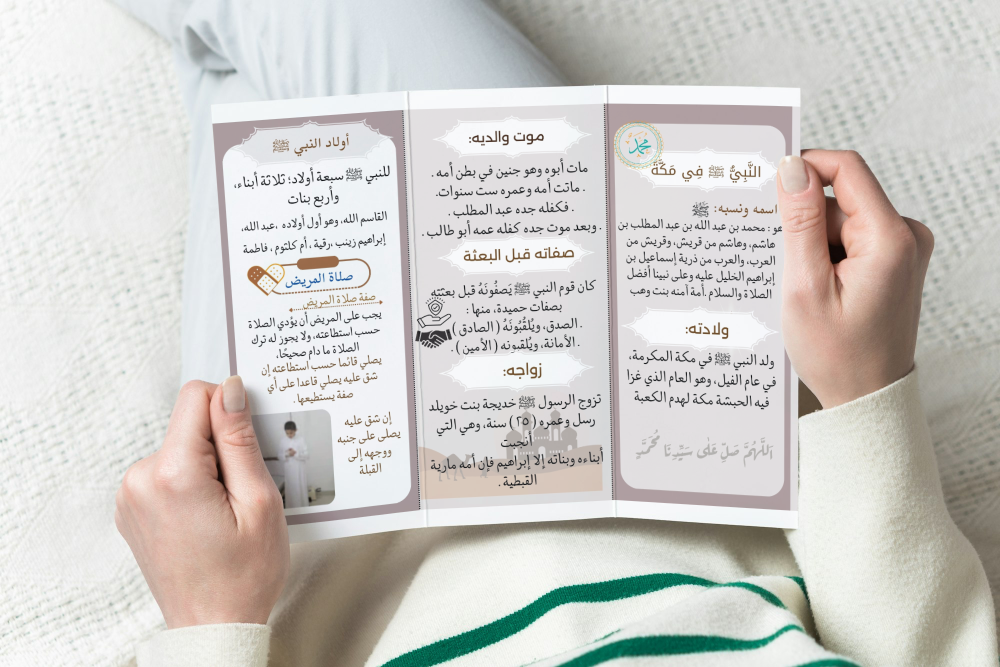 محمد
النَّبِيُّ ﷺ فِي مَكَّةَ
اسمه ونسبه: ﷺ
هو : محمد بن عبد الله بن عبد المطلب بن
هاشم، وهاشم من قريش، وقريش من
العرب، والعرب من ذرية إسماعيل بن
إبراهيم الخليل عليه وعلى نبينا أفضل
الصلاة والسلام .أمة آمنه بنت وهب
ولادته:
ولد النبي ﷺ في مكة المكرمة،
في عام الفيل، وهو العام الذي غزا
فيه الحبشة مكة لهدم الكعبة
اَللّٰهُمَّ صَلِّ عَلٰى سَيِّدِنَا مُحَمَّدٍ
موت والديه:
مات أبوه وهو جنين في بطن أمه .
. ماتت أمه وعمره ست سنوات.
. فكفله جده عبد المطلب .
. وبعد موت جده كفله عمه أبو طالب .
صفاته قبل البعثة
كان قوم النبي ﷺ يَصفُونَهُ قبل بعثته
بصفات حميدة، منها :
. الصدق، ويُلقْبُونَهُ ( الصادق )
. الأمانة، ويُلقبونه ( الأمين ) .
زواجه:
تزوج الرسول ﷺ خديجة بنت خويلد
رسل وعمره (٢٥) سنة، وهي التي
أنجبت
أبناءه وبناته إلا إبراهيم فإن أمه مارية
القبطية .
أولاد النبي ﷺ
للنبي ﷺ سبعة أولاد؛ ثلاثة أبناء،
وأربع بنات
القاسم الله، وهو أول أولاده ، عبد الله،
إبراهيم زينب ،رقية ، أم كلثوم ، فاطمة
صلاة المريض
صفة صلاة المريض
يجب على المريض أن يؤدي الصلاة
حسب استطاعته، ولا يجوز له ترك
الصلاة ما دام صحيحًا،
يصلي قائما حسب استطاعته إن
شق عليه يصلي قاعدا على أي
صفة يستطيعها .
إن شق عليه
يصلى على جنبه
ووجهه إلى
القبلة